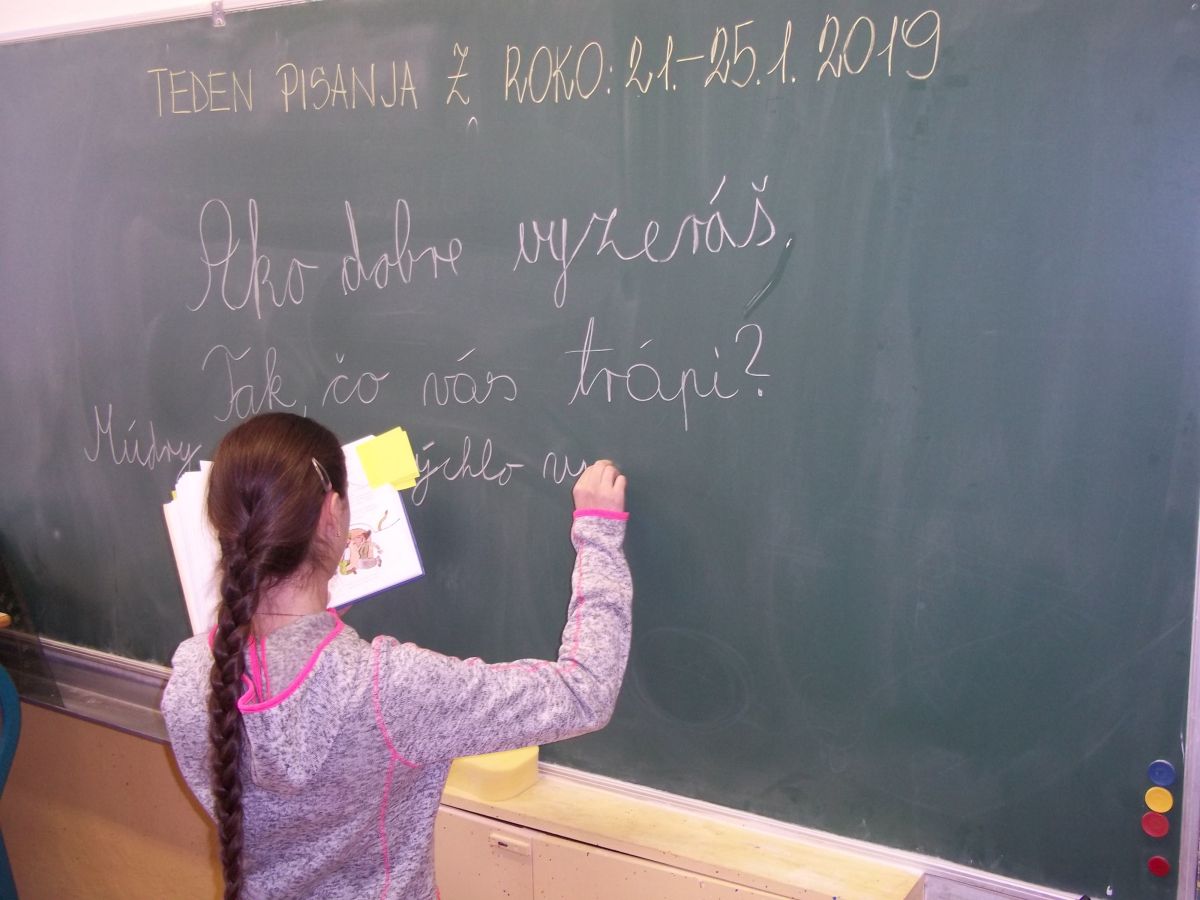 TEDEN PISANJA Z ROKO: 21.-25.1. 2019
Ako dobre vyzeráš,
Tak, čo vás trápi?
Múdry